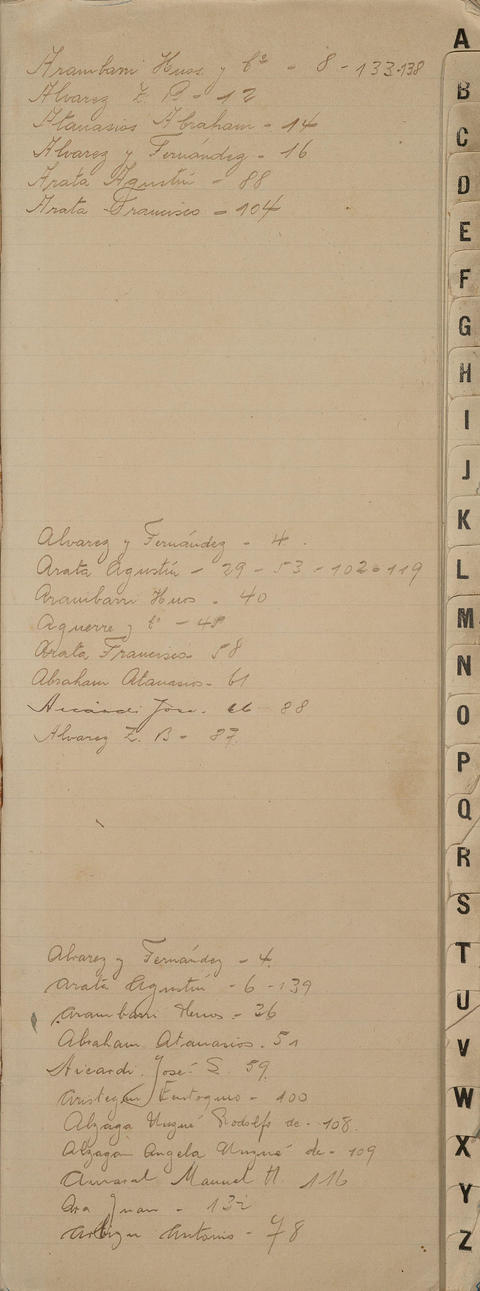 Arambarri Hnos. y Cª - 8 - 133-138
Alvarez Z. B. - 12
Atanasios Abraham - 14
Alvarez y Fernández - 16
Arata Agustín - 88
Arata Francisco - 104
Alvarez y Fernández - 4
Arata Agustín - 29 - 53 - 102-119
Arambarri Hnos - 40
Aguerre y Cª - 48
Arata Francisco 58
Abraham Atanasios - 61
Aicardi José. 88
Alvarez Z. B - 87
Alvarez y Fernández - 4
Arata Agustín - 6 - 139
Arambarri Hnos - 26
Abraham Atanasios. 51
Aicardi José S. 59
Aristegui Eustoquio - 100
Alzaga Unzué Rodolfo de - 108.
Alzaga Angela Unzué de - 109
Amaral Manuel H. 116
Ara Juan - 132
Antonio - 78
A
B
C
D
E
F
G
H
I
J
K
L
M
N
O
P
Q
R
S
T
U
V
W
X
Y
Z